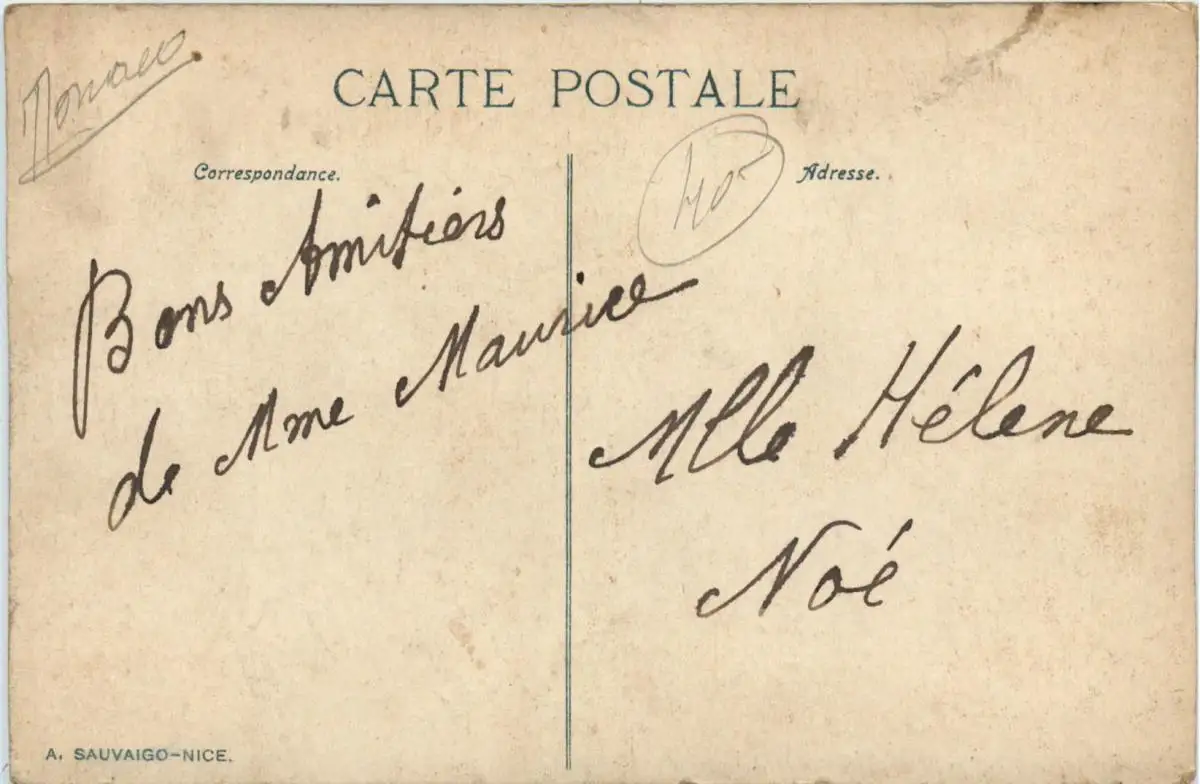 Monaco
CARTE POSTALE
Correspondance.
Bons Amitiers
de Mme Maurice
Adresse.
Mlle Hélene
Noé
A. SAUVAIGO-NICE.